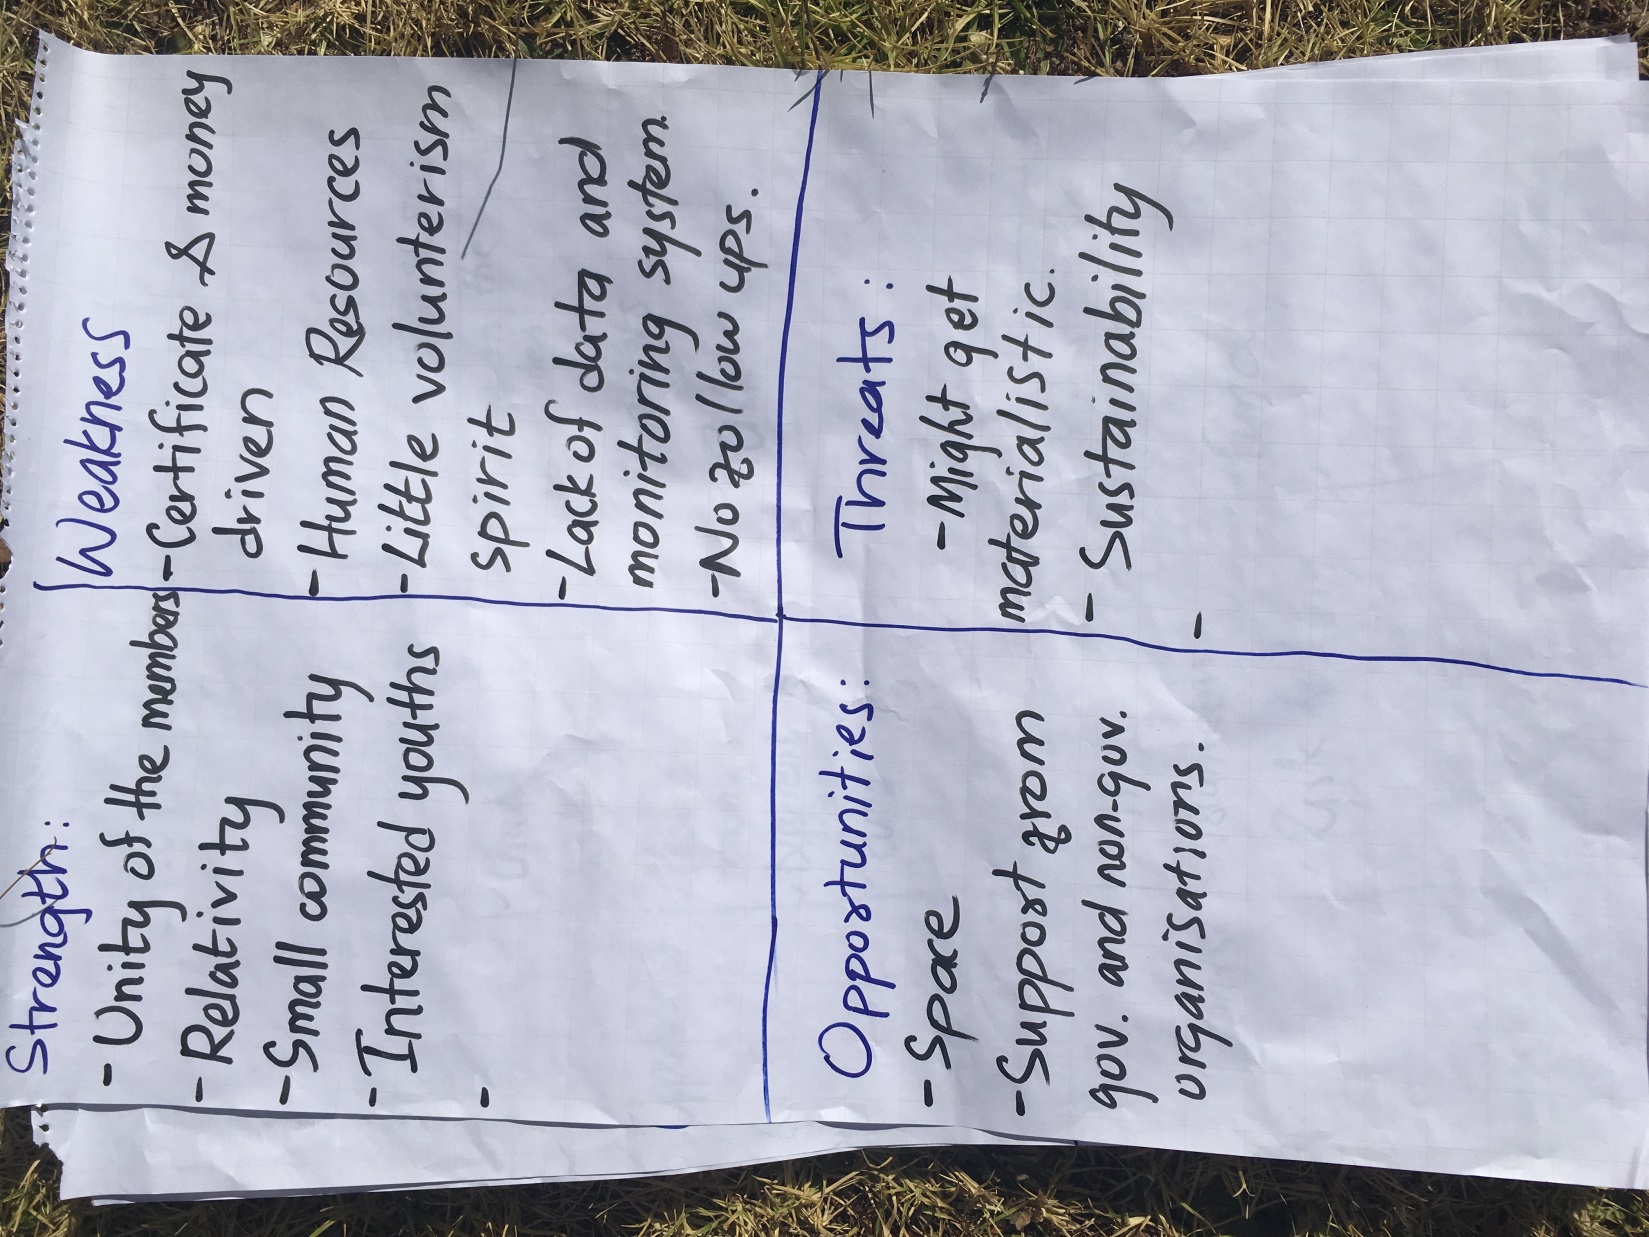 Strength:
- Unity of the members
- Relativity
- Small community
- Interested youths
-
Weakness
- Certificate & money
driven
- Human Resources
- Little volunterism
spirit
- Lack of data and
monitoring system.
- No follow ups.
Opportunities:
- Space
- Support from
gov. and non-gov.
organisations.
Threats:
- Might get
materialistic.
- Sustainability
-